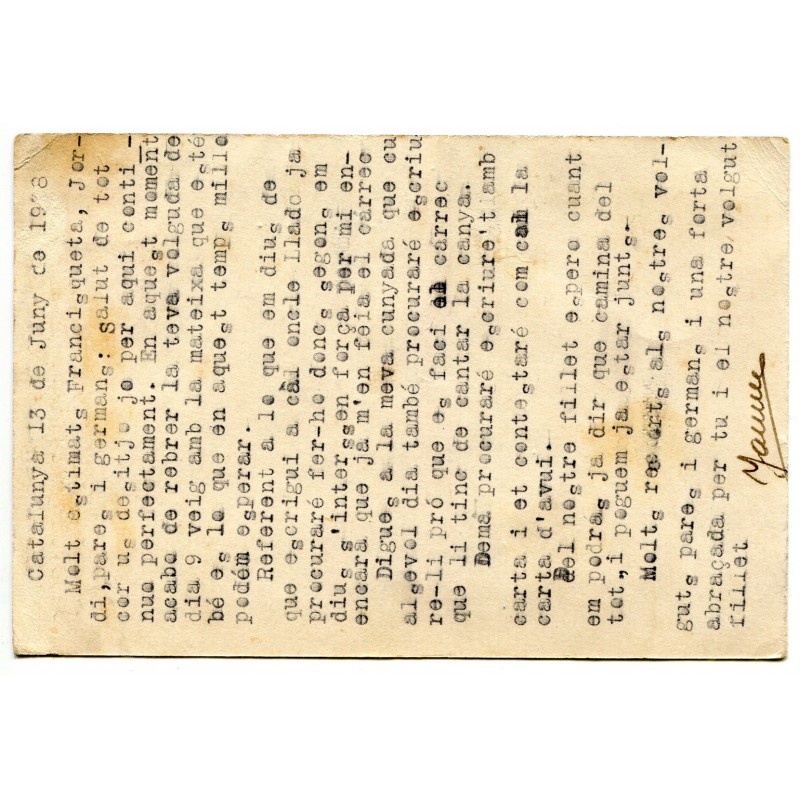 Catalunya 13 de Juny de 1938
Molt estimats Francisqueta, Jor-
di, pares i germans: Salut de tot
cor us desitjo jo per aqui conti-
nuo perfectament. En aquest moment
acabo de rebrer la teva volguda de
dia 9 veig amb la mateixa que esté
bé es lo que en aquest temps millo
podém esperar.
Referent a lo que em dius de
que escrigui a càl oncle Llado ja
procuraré fer-ho doncs segons em
dius s'interssen força per mi en-
encara que ja m'en feia el carrec
Digues a la meva cunyada que cu
alsevol dia també procuraré escriu
re-li pró que es faci el cárrec
que li tinc de cantar la canya.
Demá procuraré escriure't amb
carta i et contestaré com cal la
carta d'avui.
Del nostre fillet espero cuant
em podrás ja dir que camina del
tot, i poguem ja estar junts.
Molts records als nostres vol-
guts pares i germans i una forta
abraçada per tu i el nostre volgut
fillet
Jaume